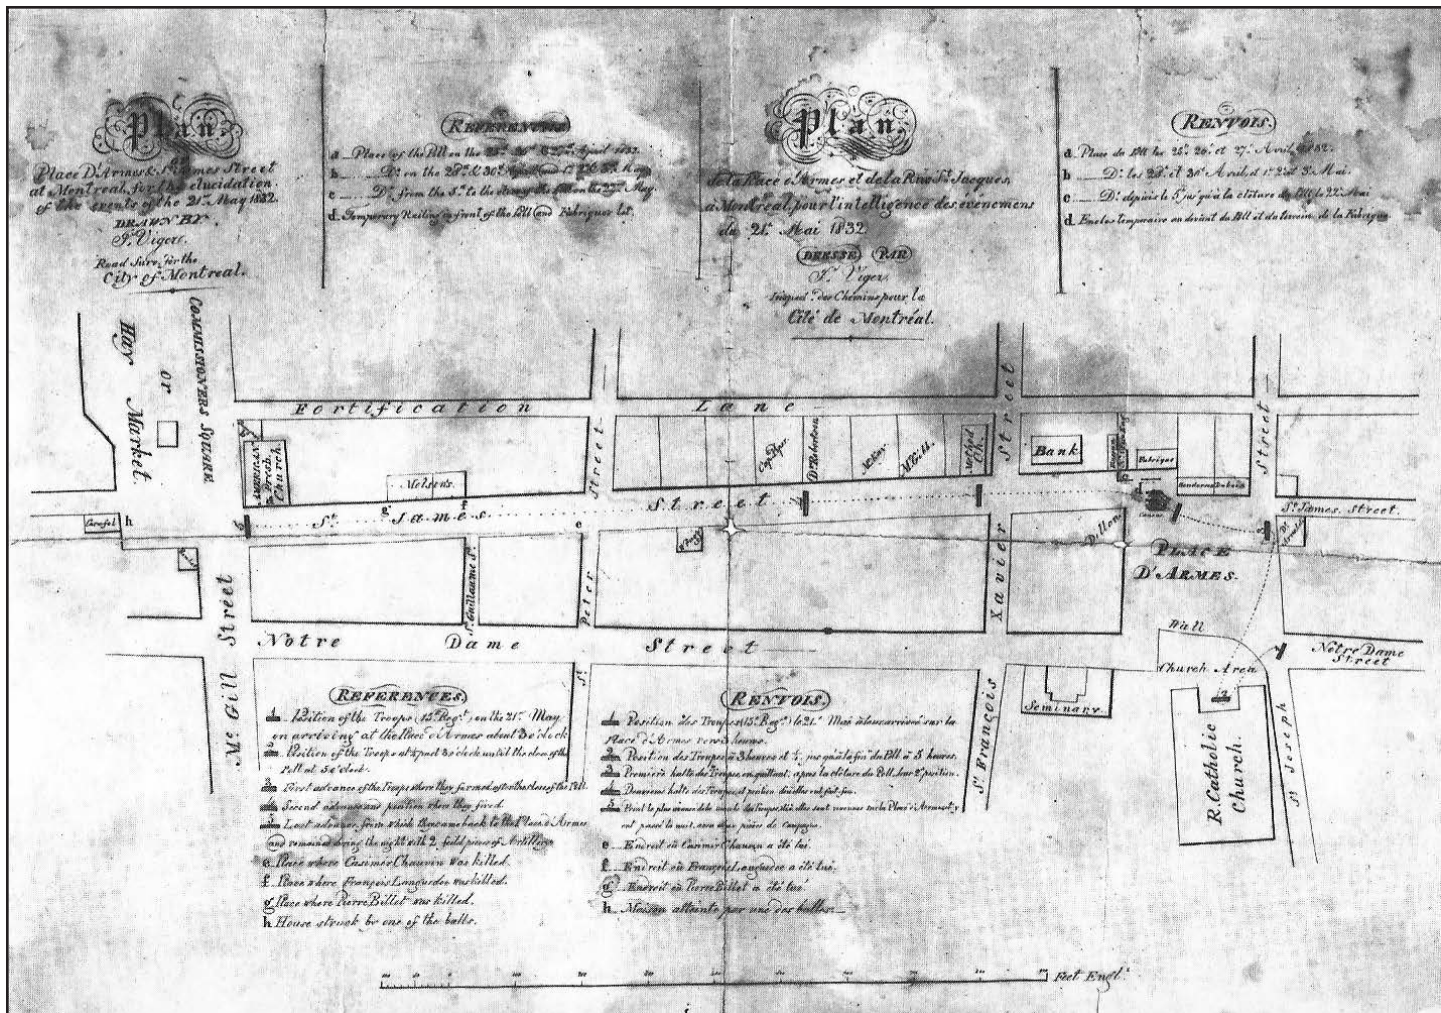 Plan.
Place D'Armes & St. James Street
at Montreal, for the elucidation
of the events of the 21st. May 1832.
DRAWN BY
Jn. Viger.
Road Surv. for the
City of Montreal.
REFERENCES
a Place of the Poll on the 25th. 26th. & 27th. April 1832.
b Do. on the 28th. & 30th. April and 1st. 2d. & 3d. May
c Do. from the 5th. to the closing of the Poll on the 22nd. May.
d Temporary Railing in front of the Poll and Fabrique lot.
Plan.
de la Place d'Armes et de la Rue St. Jacques,
à Montréal, pour l'intelligence des événemens
du 21. Mai 1832.
DRESSÉ PAR
Jn. Viger.
Inspectr. des Chemins pour la
Cité de Montréal.
RENVOIS.
a Place du Poll les 25. 26. et 27. Avril 1832.
b Do. les 28. et 30 Avril, et 1. 2. et 3. Mai.
c Do. depuis le 5. jusqu'à la clôture du Poll le 22. Mai
d Enclos temporaire au devant du Poll et du terrein de la Fabrique
Hay Market
or
COMMISSIONERS SQUARE
Fortification Lane
AMERICAN
Presb.
Church.
Molson's
g
f
St. James Street
h
5
e
4
Dr. Robertson
McGill.
Method
Ch.
Bank
Fabrique
Dillon
PLACE
D'ARMES.
St. James. Street.
2
Street
Street
Street
Mc. Gill Street
St. Guillaume St.
Peter
St.
Xavier
St. François
Notre Dame Street
Wall
Church Area
Notre Dame
Street
Seminary
R. Catholic
Church.
St. Joseph
REFERENCES.
1 Position of the Troops (15. Regt.) on the 21st. May
on arriving at the Place d'Armes about 3 o'clock
2 Position of the Troops at ¼ past 3 o'clock until the close of the
Poll at 5 o'clock.
3 First advance of the Troops where they formed after the close of the Poll
4 Second advance and position where they fired.
5 Last advance, from which they came back to the Place d'Armes
and remained during the night with 2 field pieces of Artillery
e Place where Casimer Chauvin was killed.
f Place where François Languedoc was killed.
g Place where Pierre Billet was killed.
h House struck by one of the balls.
RENVOIS.
1 Position des Troupes (15. Regt.) le 21. Mai à leur arrivée sur la
Place d'Armes vers 3 heures.
2 Position des Troupes à 3 heures et ¼, jusqu'à la fin du Poll à 5 heures.
3 Première halte des Troupes, en quittant, après la clôture du Poll, leur 2e. position.
4 Deuxième halte des Troupes, et position d'où elles ont fait feu.
5 Point le plus avancé de la marche des Troupes, d'où elles sont revenues sur la Place d'Armes, et y
ont passé la nuit, avec deux pièces de Campagne.
e Endroit où Casimir Chauvin a été tué.
f Endroit où François Languedoc a été tué.
g Endroit où Pierre Billet a été tué.
h Maison atteinte par une des balles.
Feet Engl.